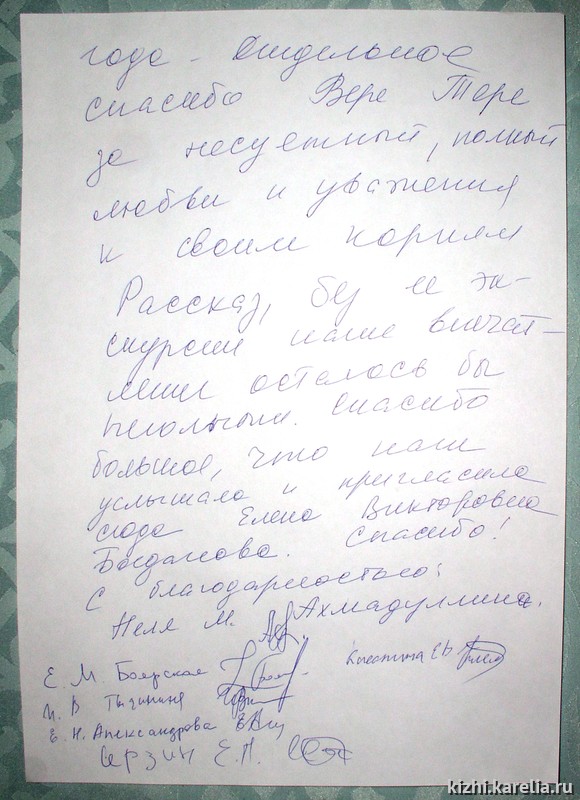 года - Отдельное
спасибо Вере Тере
за несуетный, полный
любви и уважения
к своим корням
Рассказ, без ее эк-
скурсии наше впечат-
ление осталось бы
неполным. Спасибо
большое, что нас
услышала и пригласила
сюда Елена Викторовна
Богданова. Спасибо!
С благодарностью:
Неля М. Ахмадуллина.
Е. М. Боярская
Е В
И. В Тычинина
Е. Н. Александрова
Серзин Е. А.
kizhi.karelia.ru